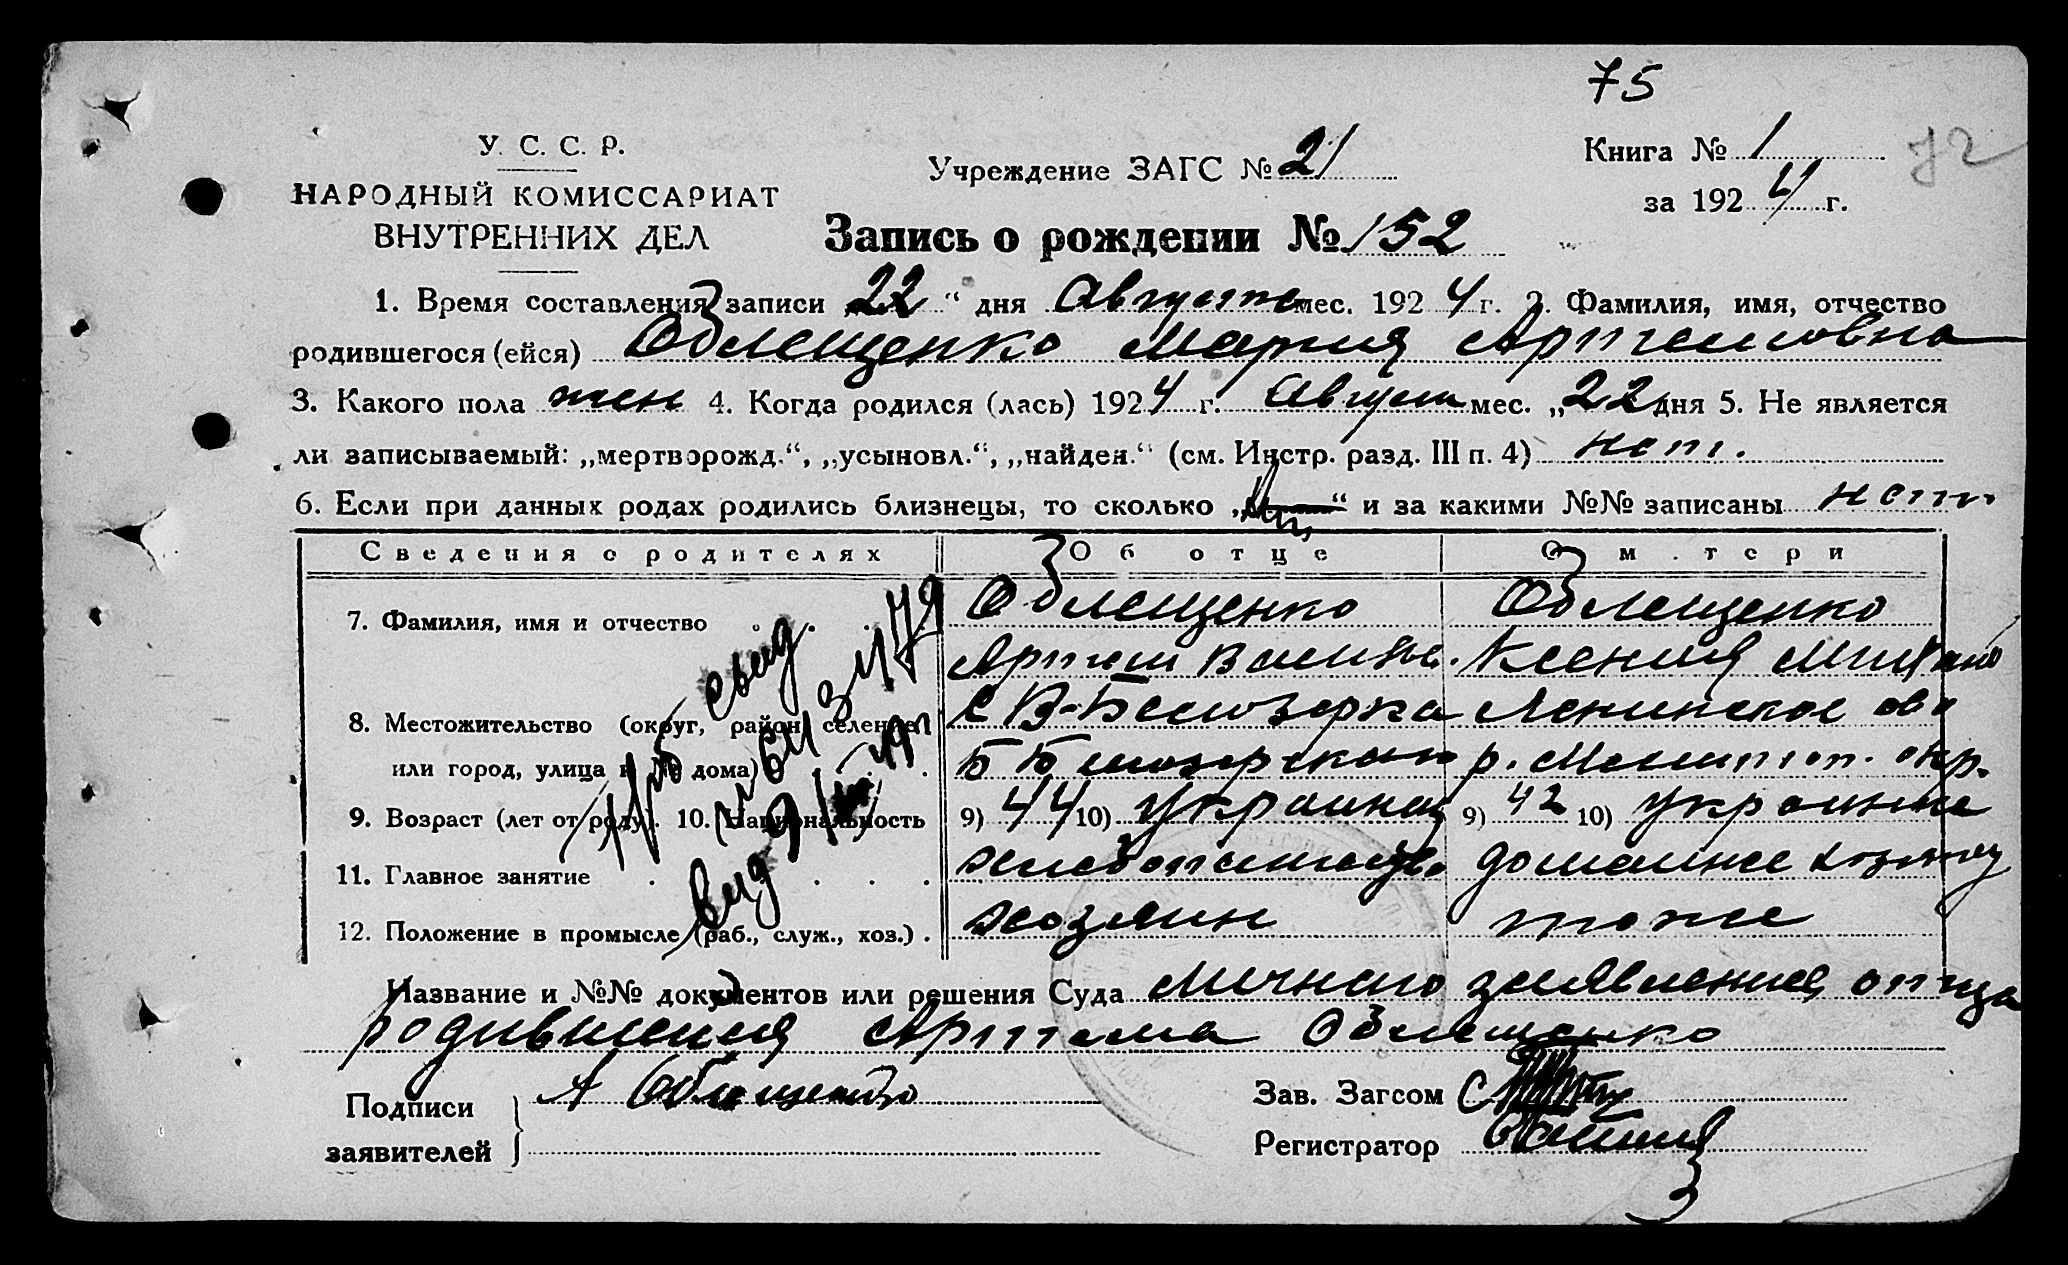 75
У. С. С. Р.
НАРОДНЫЙ КОМИССАРИАТ
ВНУТРЕННИХ ДЕЛ
Учреждение ЗАГС № 21
Книга № 1
72
за 1924 г.
Запись о рождении № 152
1. Время составления записи „22“ дня Августа мес. 1924 г. 2. Фамилия, имя, отчество
родившегося (ейся) Облещенко Мария Артемовна
3. Какого пола жен 4. Когда родился (лась) 1924 г. Август мес. „22 дня 5. Не является
ли записываемый: „мертворожд.“, „усыновл.“, „найден.“ (см. Инстр. разд. III п. 4) нет.
6. Если при данных родах родились близнецы, то сколько „ “ и за какими №№ записаны нет.
Сведения о родителях Об отце О м . тери
7. Фамилия, имя и отчество Облещенко Облещенко
Артем Ксения
8. Местожительство (округ, район, селение С В-Белозерка Ленинское
или город, улица и № дома) р. Мелитоп. окр.
9. Возраст (лет от роду). 10. Национальность 9) 44 10) Украинец 9) 42 10) Украинка
11. Главное занятие домашнее
12. Положение в промысле (раб., служ., хоз.) хозяин тоже
свид.
выд
Название и №№ документов или решения Суда Личного заявления отца
родившейся Артема Облещенко
Подписи заявителей А Облещенко
Зав. Загсом
Регистратор